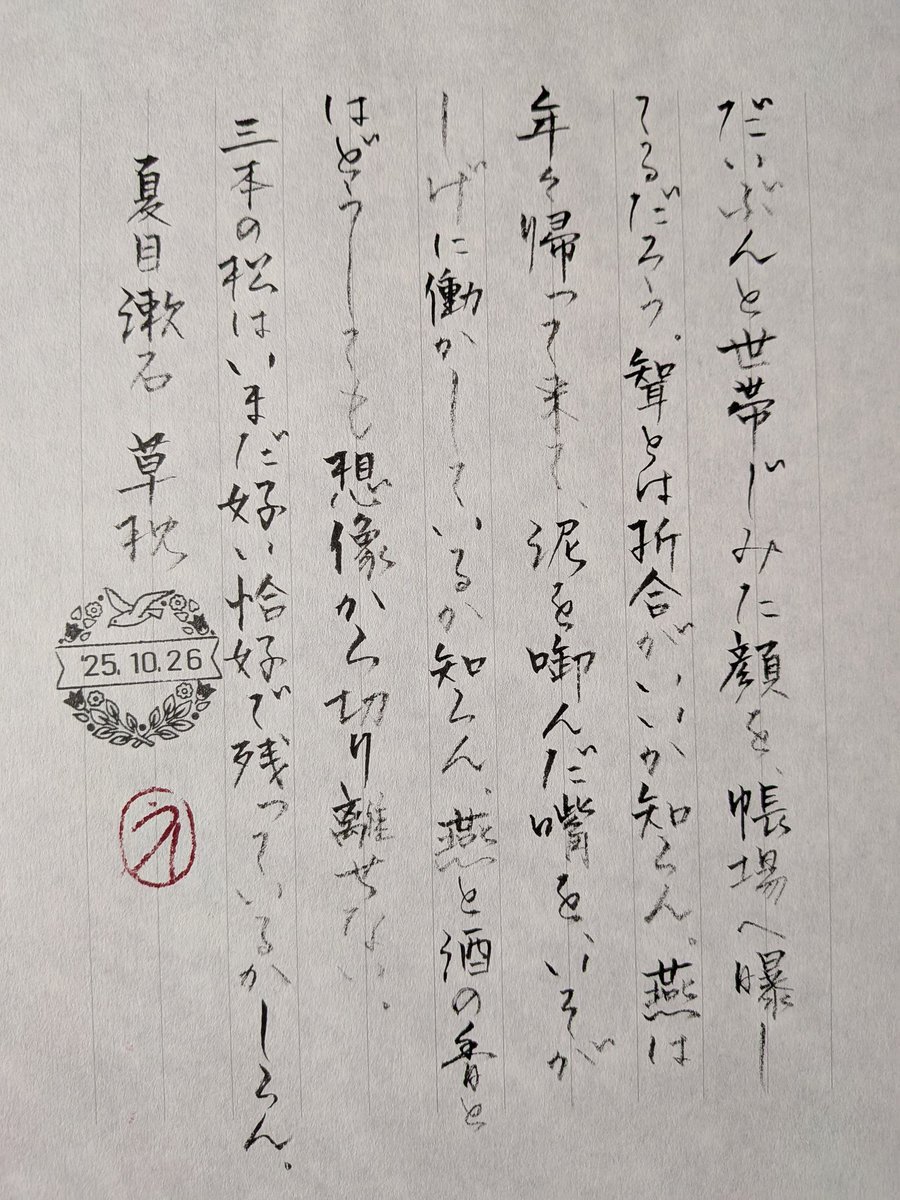 だいぶんと世帯じみた顔を、帳場へ曝し
てるだろう。聟とは折合がいいか知らん。燕は
年々帰って来て、泥を啣んだ嘴を、いそが
しげに働かしているか知らん。燕と酒の香と
はどうしても想像から切り離せない。
三本の松はいまだ好い恰好で残っているかしらん。
夏目漱石 草枕
'25.10.26